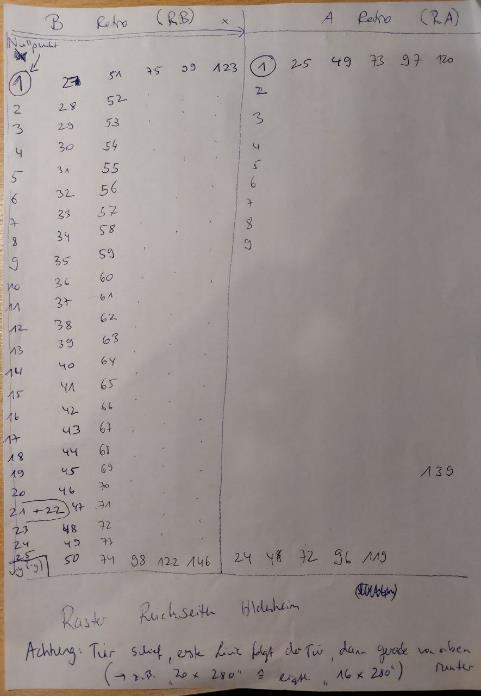 B Retro (RB) x A Retro (RA)
Nullpunkt
1 27 51 75 99 123 1 25 49 73 97 120
2 28 52 2
3 29 53 3
4 30 54 4
5 31 55 5
6 32 56 6
7 33 57 7
8 34 58 8
9 35 59 9
10 36 60
11 37 61
12 38 62
13 39 63
14 40 64
15 41 65
16 42 66
17 43 67
18 44 68
19 45 69 139
20 46 70
21 + 22 47 71
23 48 72
24 49 73
50 74 98 122 146 24 48 72 96 119
Raster Rückseite Hildesheim
Achtung: Tür schief, erste Linie folgt der Tür, dann gerade von oben runter
(→ z.B. "20 x 280" "16 x 280")